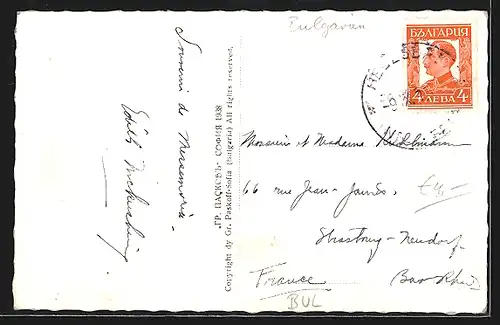 Bulgarien
БЪЛГАРИЯ
4 ЛЕВА 4
Souvenir de
„ГР. ПАСКОВЪ“- СОФИЯ 1938
Copyright dy Gr. Paskoff-Sofia (Bulgaria) All rights reserved.
Monsieur et Madame
66 rue Jean-Jaurès.
Strasbourg-Neudorf
France Bas Rhin
BUL